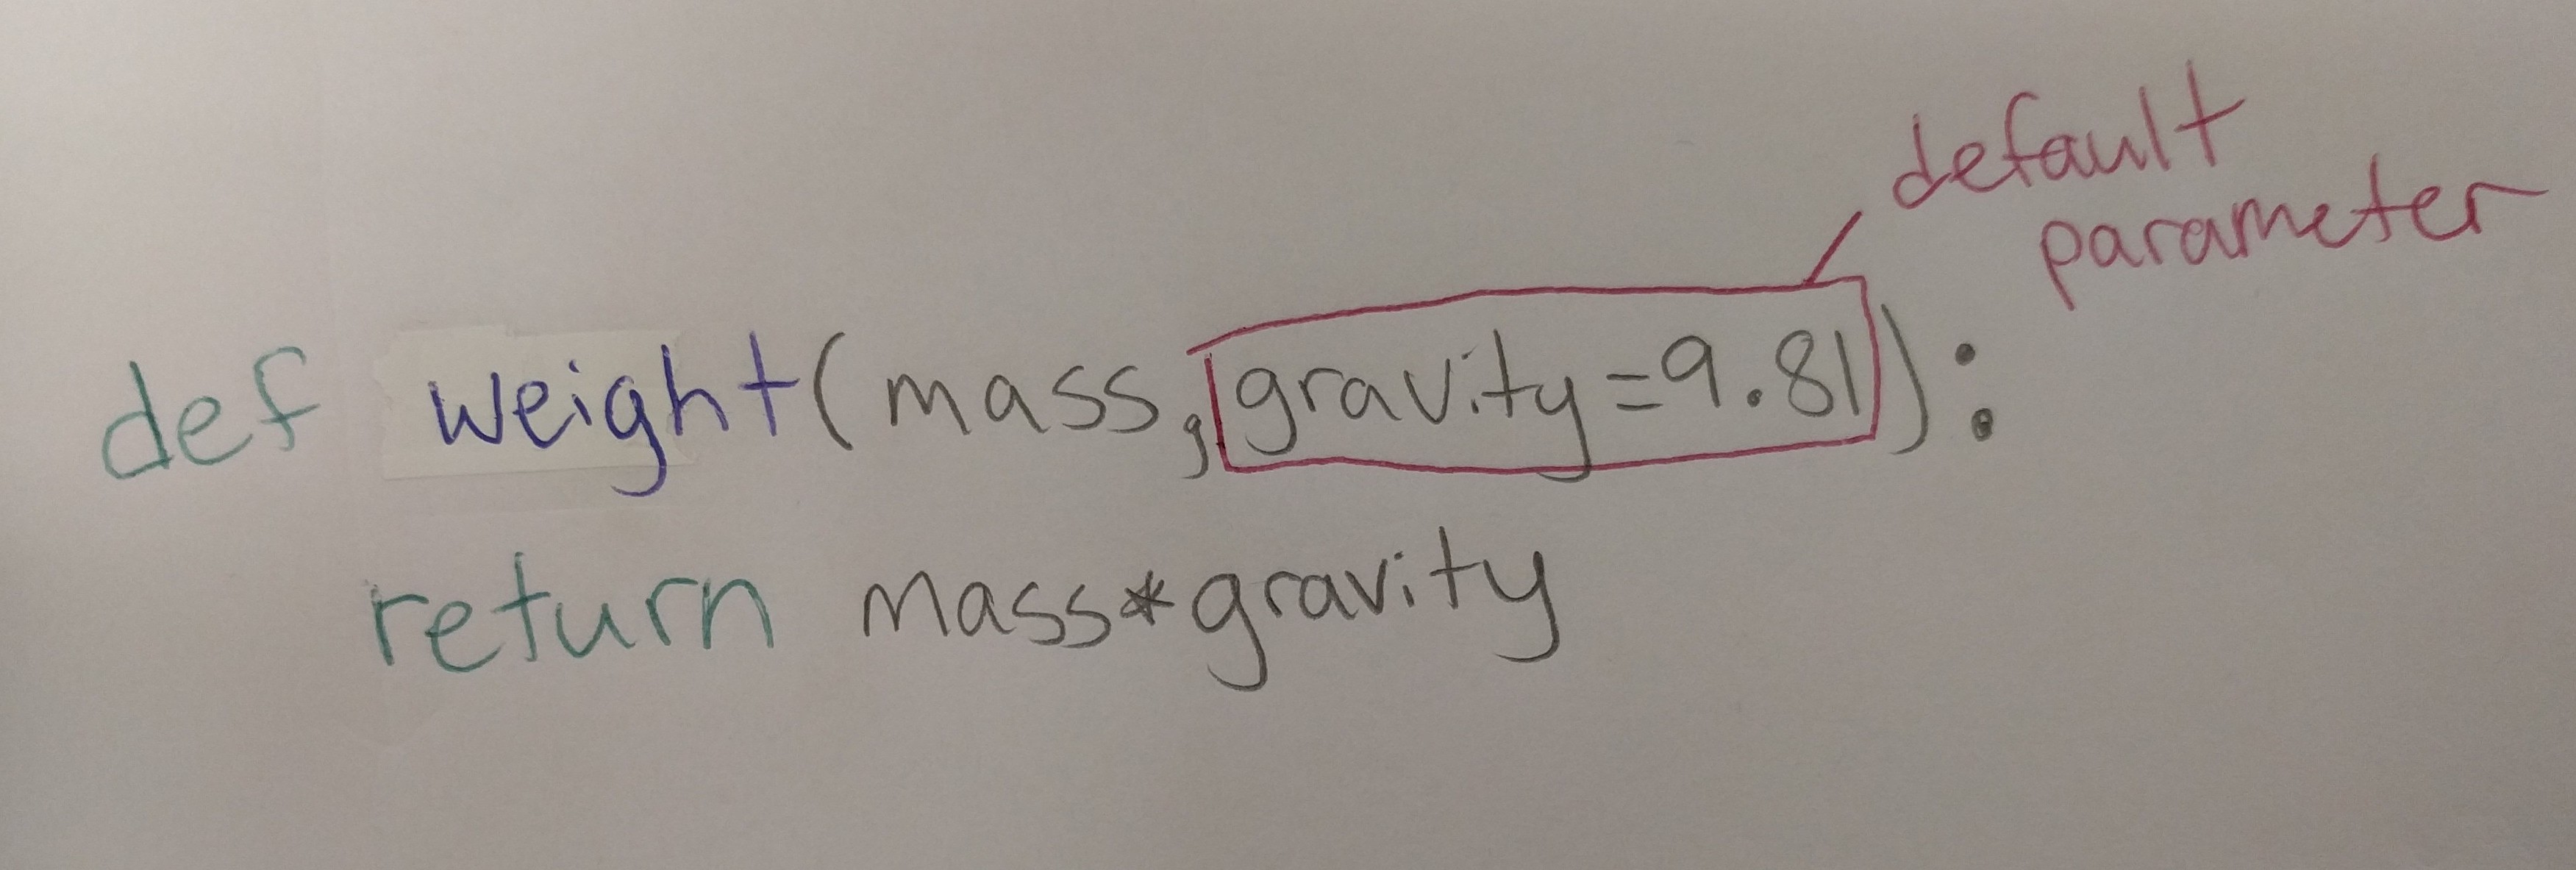 default
parameter
def weight(mass,gravity=9.81):
return mass*gravity